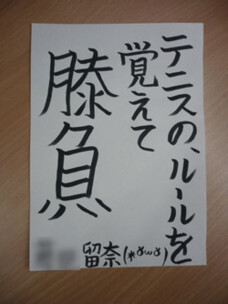 テニスの、ルールを
覚えて
膝負
留奈(*´ω`)